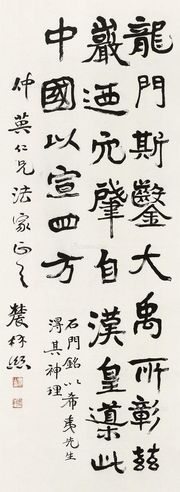 龍門斯鑿大禹所彰茲
巖迺穴肇自漢皇導此
中國以宣四方
石門銘以希夷先生
淂其神理
仲英仁兄法家正之 農髯熙